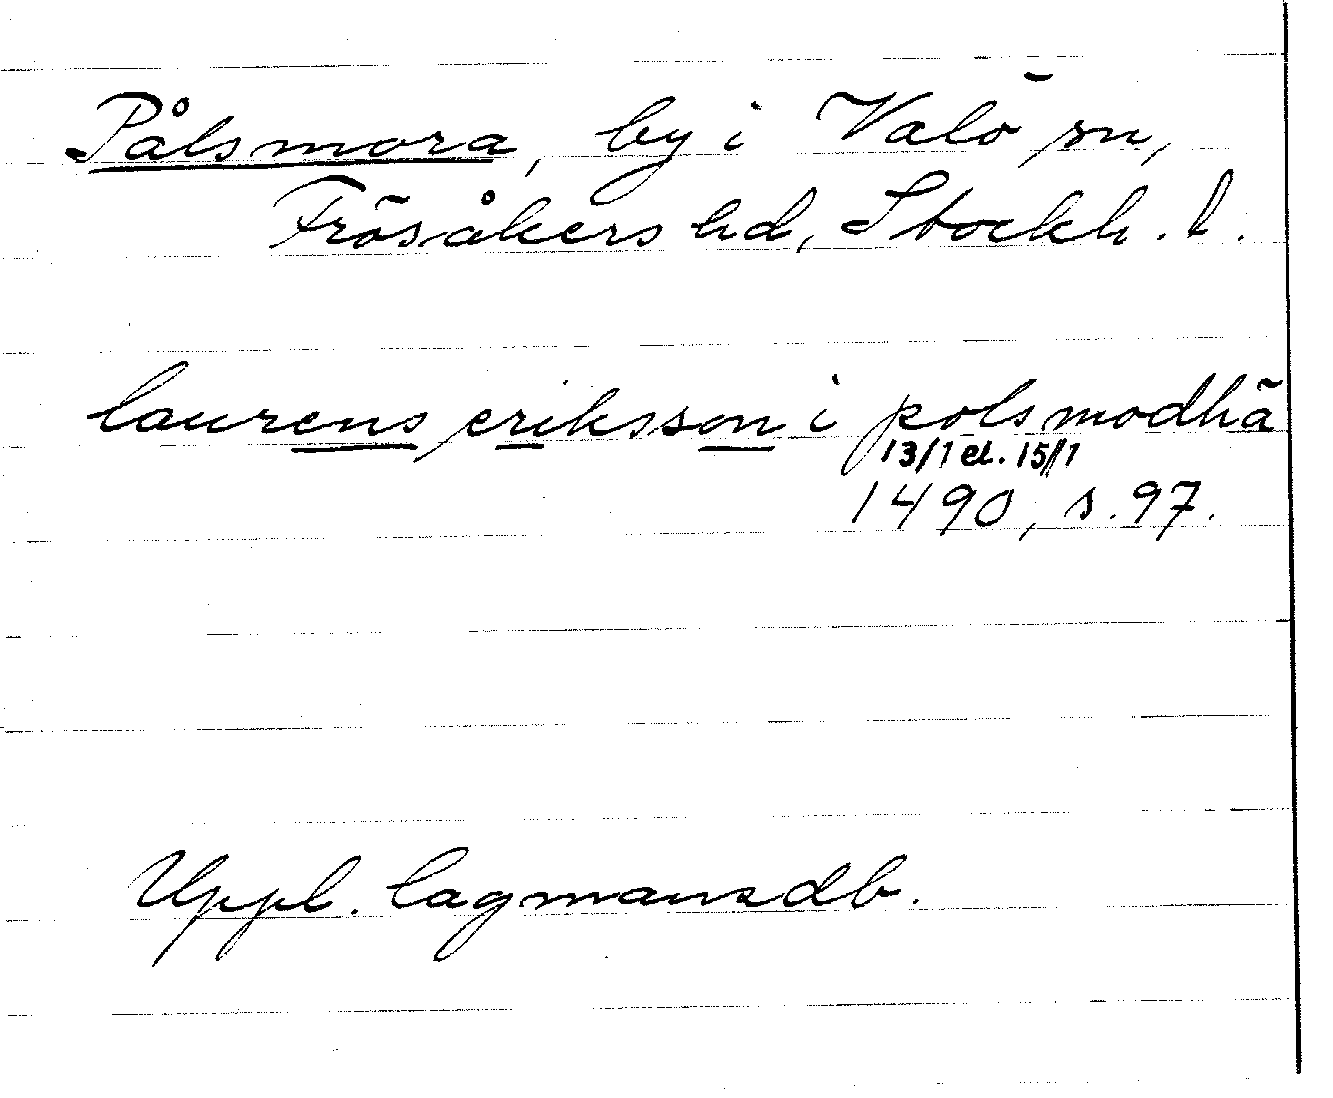 Pålsmora, by i Valö sn,
Frösåkers hd, Stockh. l.
laurens eriksson i polsmodhā
13/1 el. 15/1
1490, s. 97.
Uppl. lagmansdb.